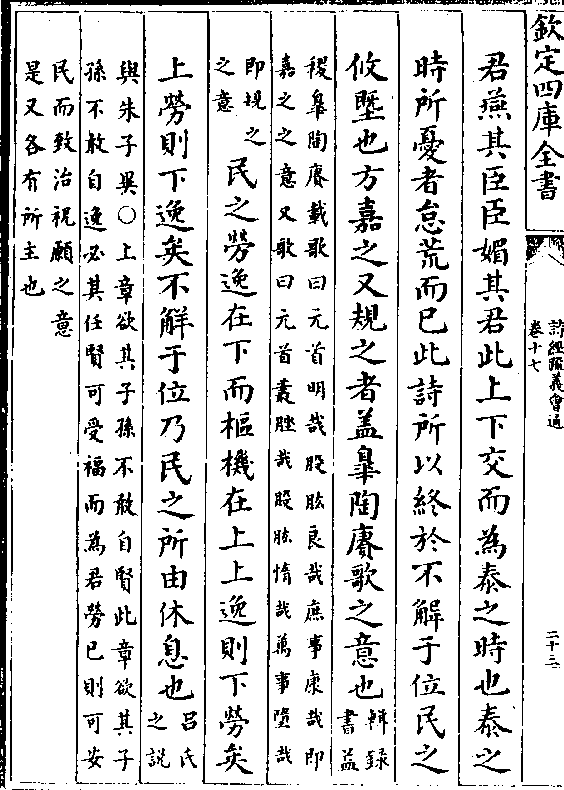 欽定四庫全書
詩經疏義會通
卷十七
二十三
君燕其臣臣媚其君此上下交而為泰之時也泰之
時所憂者怠荒而已此詩所以終於不解于位民之
攸塈也方嘉之又規之者蓋臯陶賡歌之意也
輯録
書益
稷臯陶賡載歌曰元首明哉股肱良哉庶事康哉即
嘉之之意又歌曰元首叢脞哉股肱惰哉萬事隳哉
即規之
之意
民之勞逸在下而樞機在上上逸則下勞矣
上勞則下逸矣不解于位乃民之所由休息也
吕氏
之說
與朱子異○上章欲其子孫不敢自賢此章欲其子
孫不敢自逸必其任賢可受福而為君勞已則可安
民而致治祝願之意
是又各有所主也